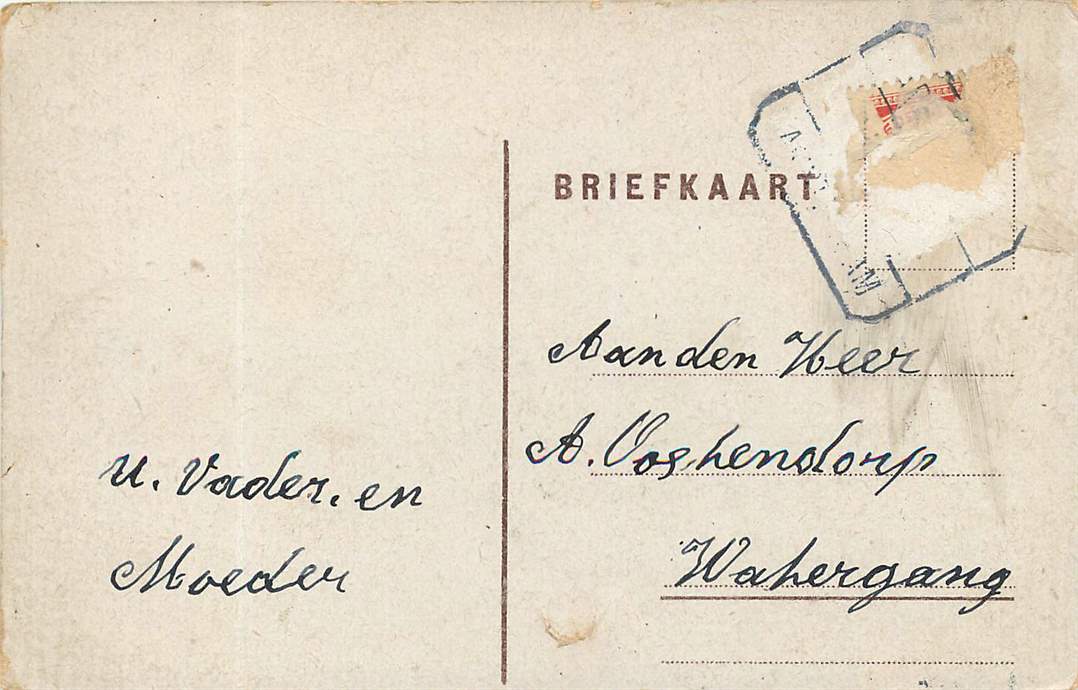 BRIEFKAART
Aan den Heer
A. Ooskendorp
Wakergang
U. Vader. en
Moeder